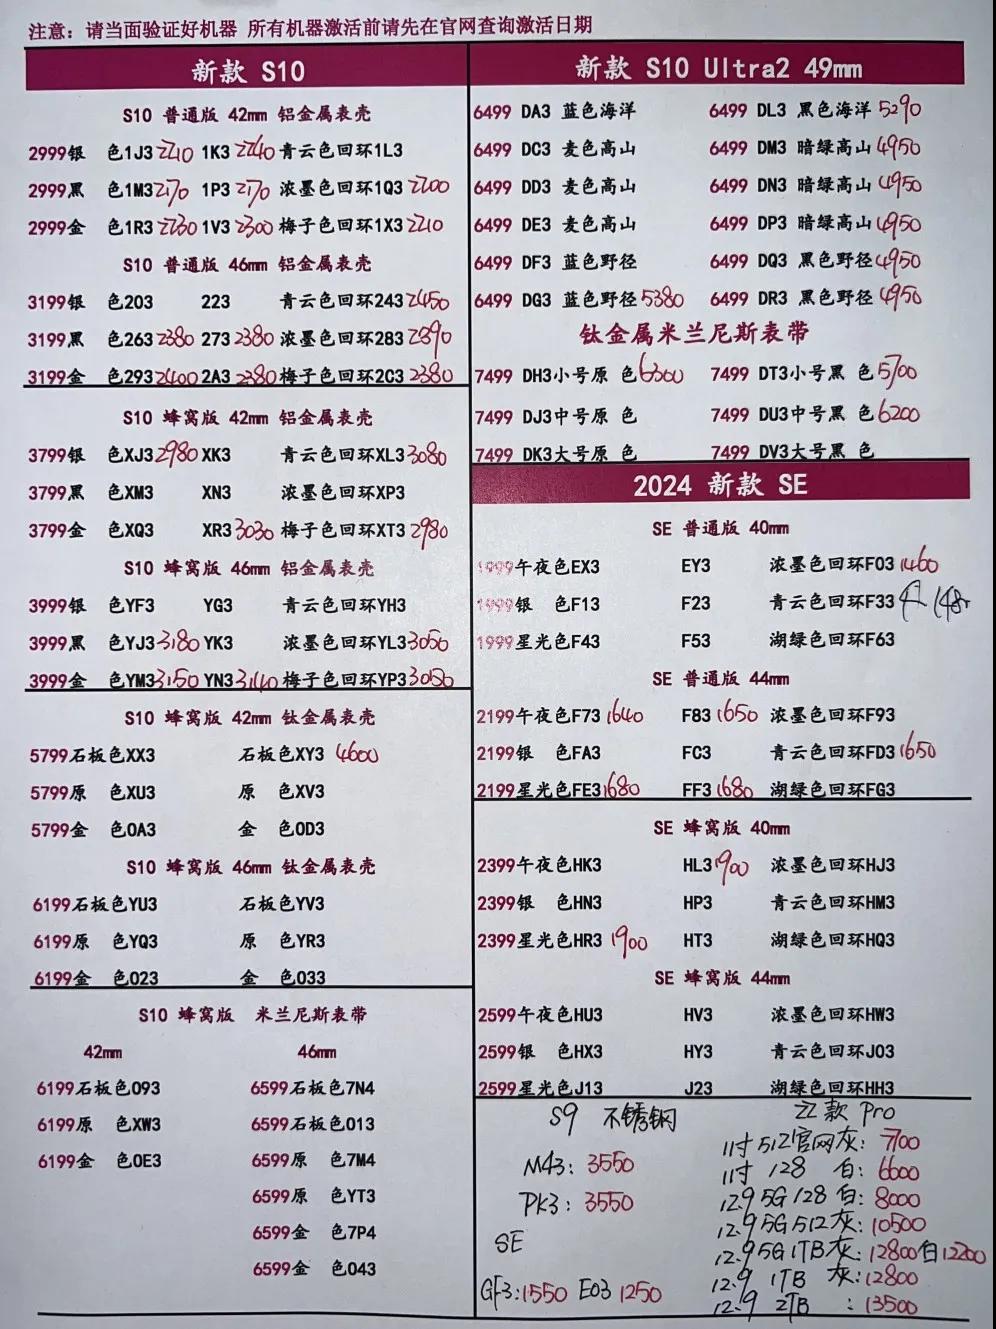 注意：请当面验证好机器 所有机器激活前请先在官网查询激活日期
新款 S10
S10 普通版 42mm 铝金属表壳
2999银 色1J3 2210 1K3 2240 青云色回环1L3
2999黑 色1M3 2170 1P3 2170 浓墨色回环1Q3 2200
2999金 色1R3 2230 1V3 2300 梅子色回环1X3 2210
S10 普通版 46mm 铝金属表壳
3199银 色203 223 青云色回环243 2450
3199黑 色263 2380 273 2380 浓墨色回环283 2390
3199金 色293 2400 2A3 2380 梅子色回环2C3 2380
S10 蜂窝版 42mm 铝金属表壳
3799银 色XJ3 2980 XK3 青云色回环XL3 3080
3799黑 色XM3 XN3 浓墨色回环XP3
3799金 色XQ3 XR3 3030 梅子色回环XT3 2980
S10 蜂窝版 46mm 铝金属表壳
3999银 色YF3 YG3 青云色回环YH3
3999黑 色YJ3 3180 YK3 浓墨色回环YL3 3050
3999金 色YM3 3150 YN3 3140 梅子色回环YP3 3050
S10 蜂窝版 42mm 钛金属表壳
5799石板色XX3 石板色XY3 4600
5799原 色XU3 原 色XV3
5799金 色0A3 金 色0D3
S10 蜂窝版 46mm 钛金属表壳
6199石板色YU3 石板色YV3
6199原 色YQ3 原 色YR3
6199金 色023 金 色033
S10 蜂窝版 米兰尼斯表带
42mm 46mm
6199石板色093 6599石板色7N4
6199原 色XW3 6599石板色013
6199金 色0E3 6599原 色7M4
6599原 色YT3
6599金 色7P4
6599金 色043
新款 S10 Ultra2 49mm
6499 DA3 蓝色海洋 6499 DL3 黑色海洋 5290
6499 DC3 麦色高山 6499 DM3 暗绿高山 4950
6499 DD3 麦色高山 6499 DN3 暗绿高山 4950
6499 DE3 麦色高山 6499 DP3 暗绿高山 4950
6499 DF3 蓝色野径 6499 DQ3 黑色野径 4950
6499 DG3 蓝色野径 5380 6499 DR3 黑色野径 4950
钛金属米兰尼斯表带
7499 DH3小号原 色 6300 7499 DT3小号黑 色 5700
7499 DJ3中号原 色 7499 DU3中号黑 色 6200
7499 DK3大号原 色 7499 DV3大号黑 色
2024 新款 SE
SE 普通版 40mm
1999午夜色EX3 EY3 浓墨色回环F03 1460
1999银 色F13 F23 青云色回环F33
1999星光色F43 F53 湖绿色回环F63
SE 普通版 44mm
2199午夜色F73 1640 F83 1650 浓墨色回环F93
2199银 色FA3 FC3 青云色回环FD3 1650
2199星光色FE3 1680 FF3 1680 湖绿色回环FG3
SE 蜂窝版 40mm
2399午夜色HK3 HL3 1900 浓墨色回环HJ3
2399银 色HN3 HP3 青云色回环HM3
2399星光色HR3 1900 HT3 湖绿色回环HQ3
SE 蜂窝版 44mm
2599午夜色HU3 HV3 浓墨色回环HW3
2599银 色HX3 HY3 青云色回环J03
2599星光色J13 J23 湖绿色回环HH3
S9 不锈钢
M43: 3550
PK3: 3550
SE
GF3: 1550 E03 1250
22款 Pro
11寸 512官网灰: 7700
11寸 128 白: 6600
12.9 5G 128 白: 8000
12.9 5G 512 灰: 10500
12.9 5G 1TB 灰: 12800 白 12200
12.9 1TB 灰: 12800
12.9 2TB : 13500